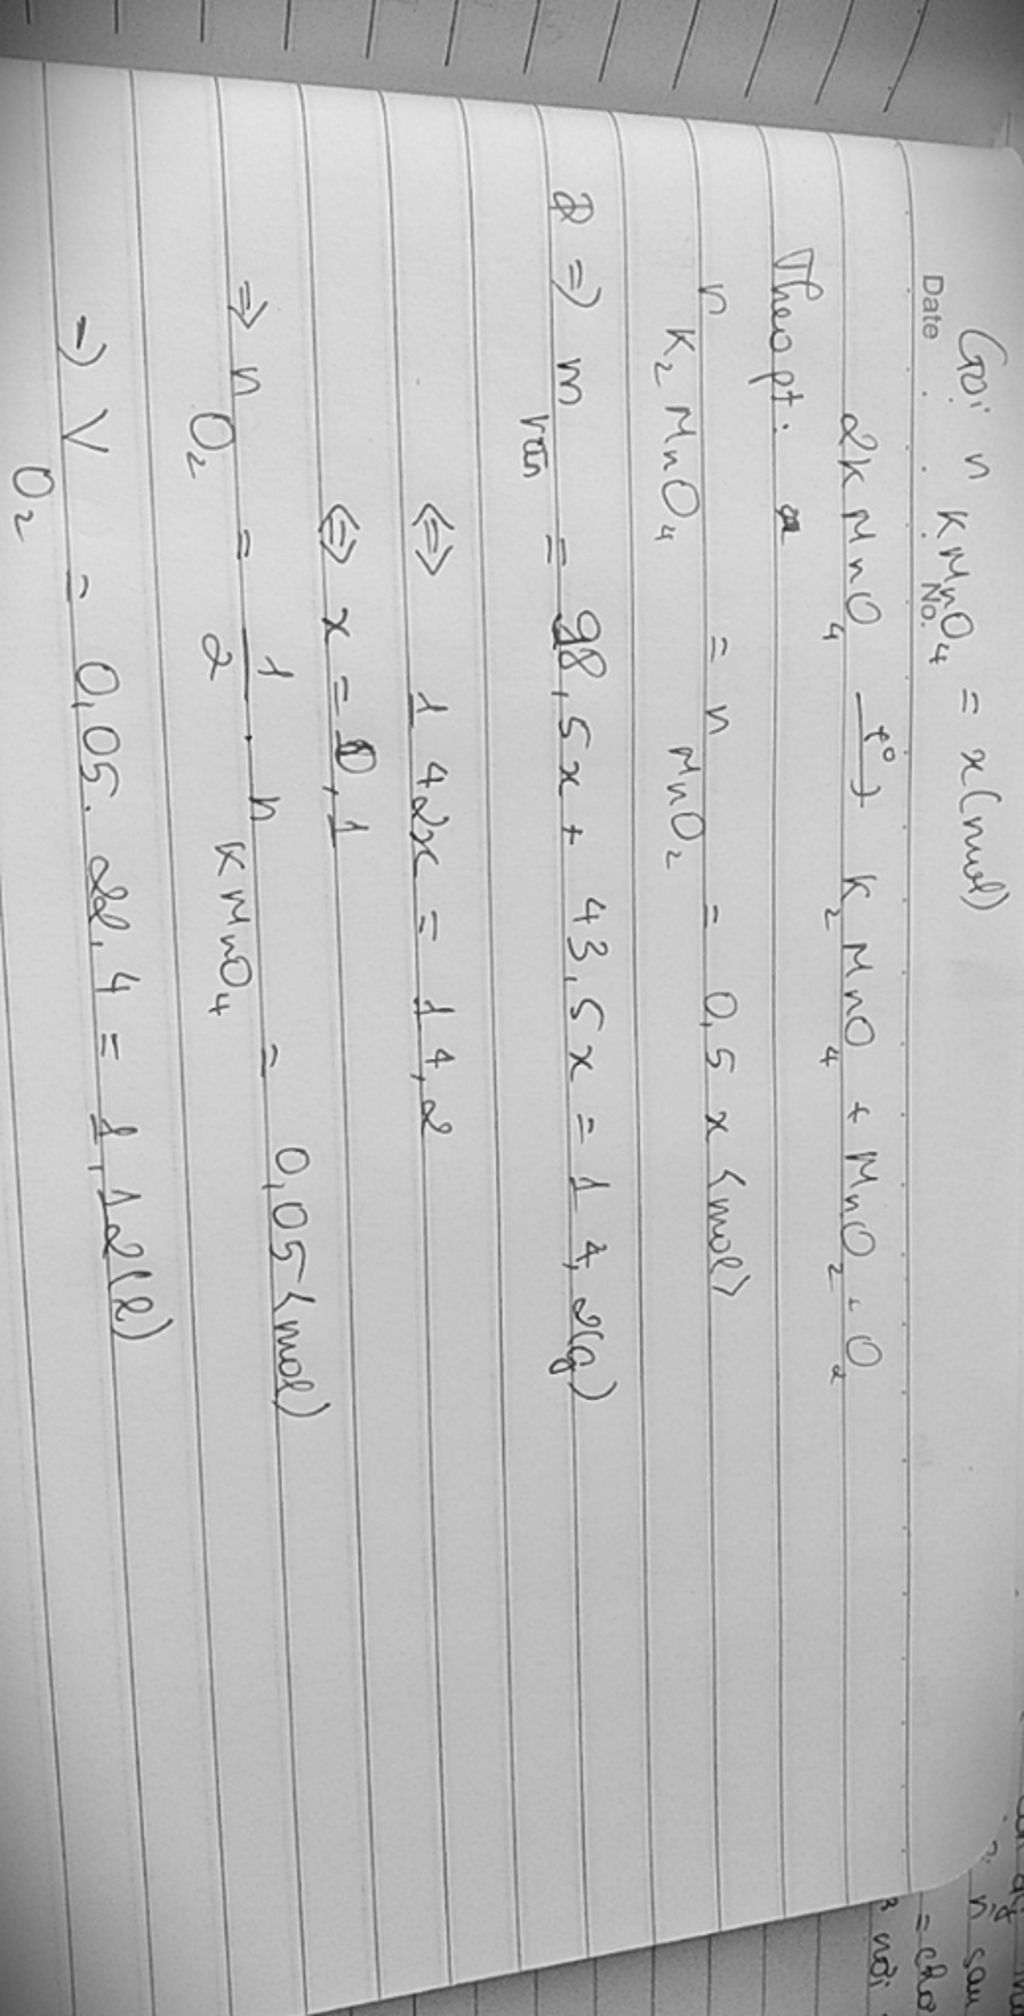 Gọi n KMnO4 = x(mol)
Date No.
2KMnO4 —t°→ K2MnO4 + MnO2 + O2
Theo pt:
n K2MnO4 = n MnO2 = 0,5 x <mol>
=> m rắn = 98,5x + 43,5x = 14,2(g)
<=> 142x = 14,2
<=> x = 0,1
=> n O2 = 1/2 . n KMnO4 = 0,05 <mol)
=> V O2 = 0,05. 22,4 = 1,12(l)
sau
= cho
nói